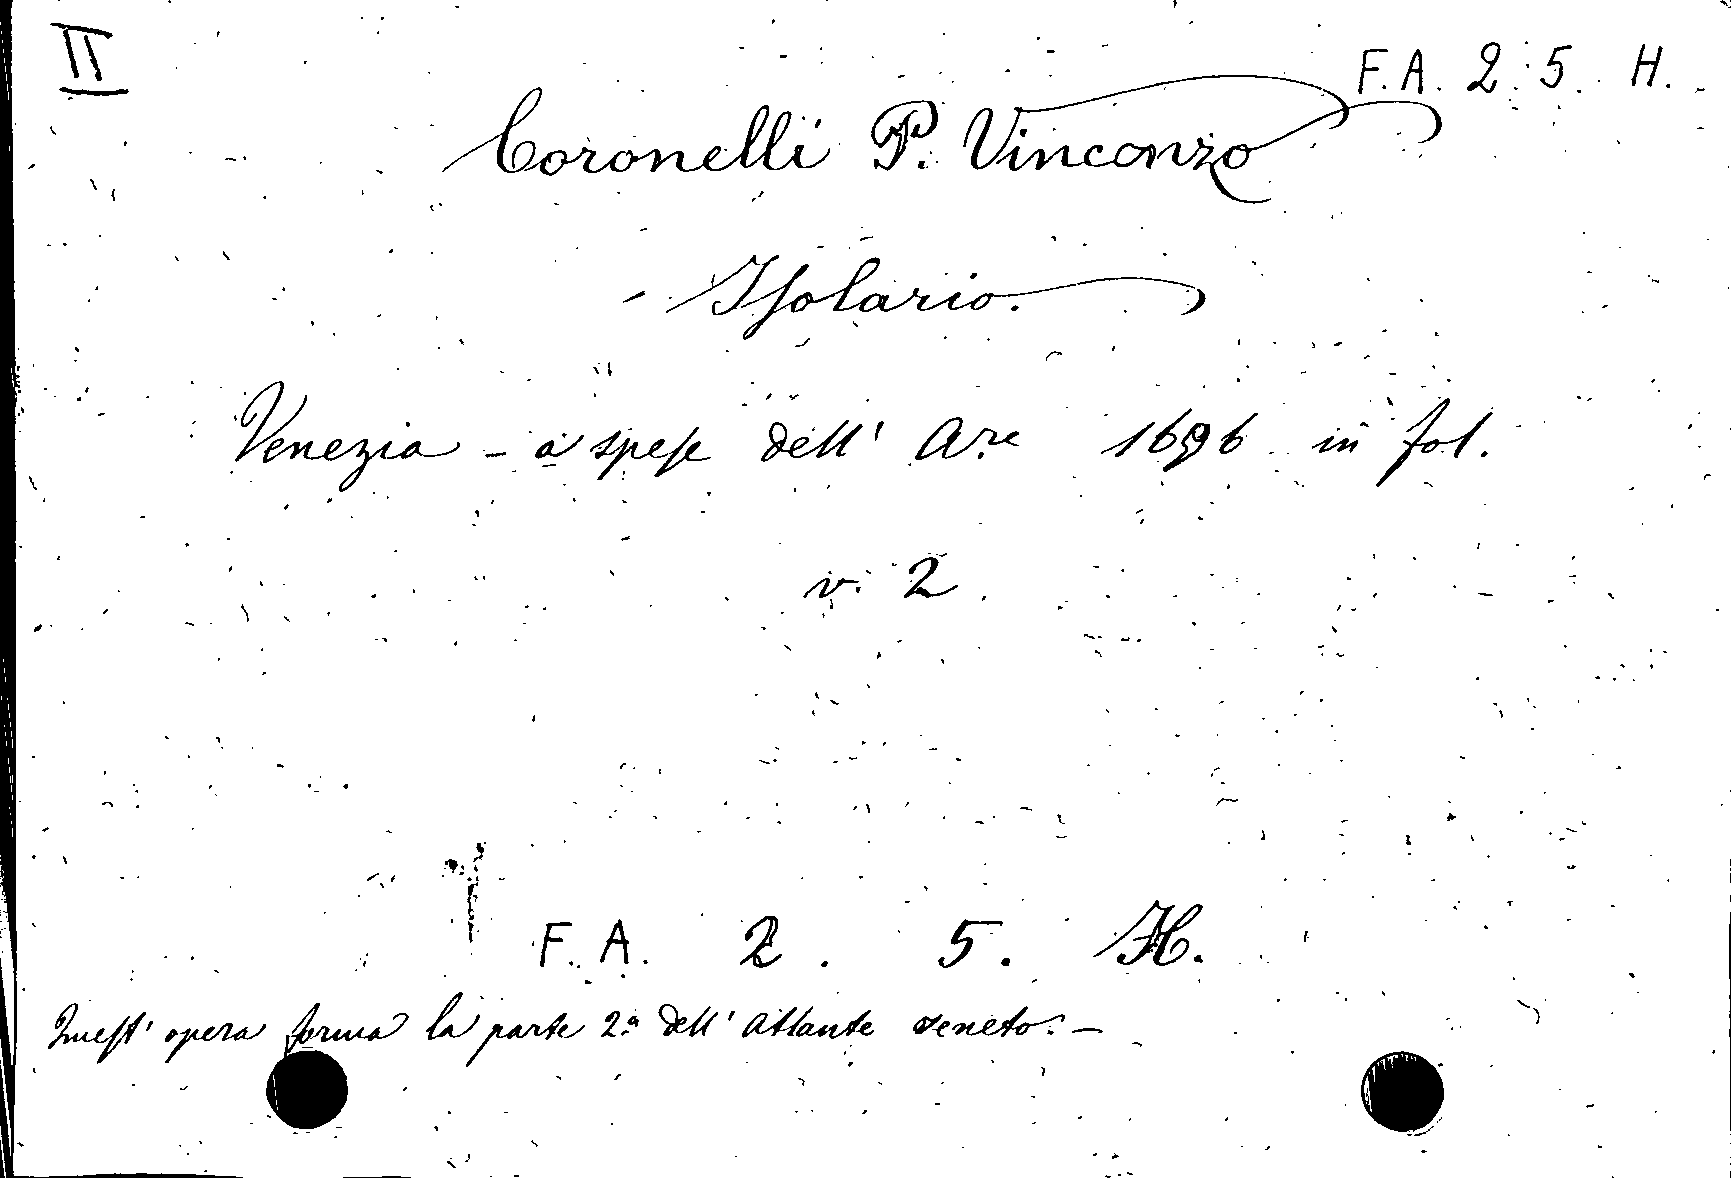 II
F. A. 2. 5. H.
Coronelli P. Vincenzo
- Isolario.
Venezia - a spese dell' A.re 1696 in fol.
v. 2.
F. A. 2. 5. H.
Quest' opera forma la parte 2.a dell' Atlante veneto. -